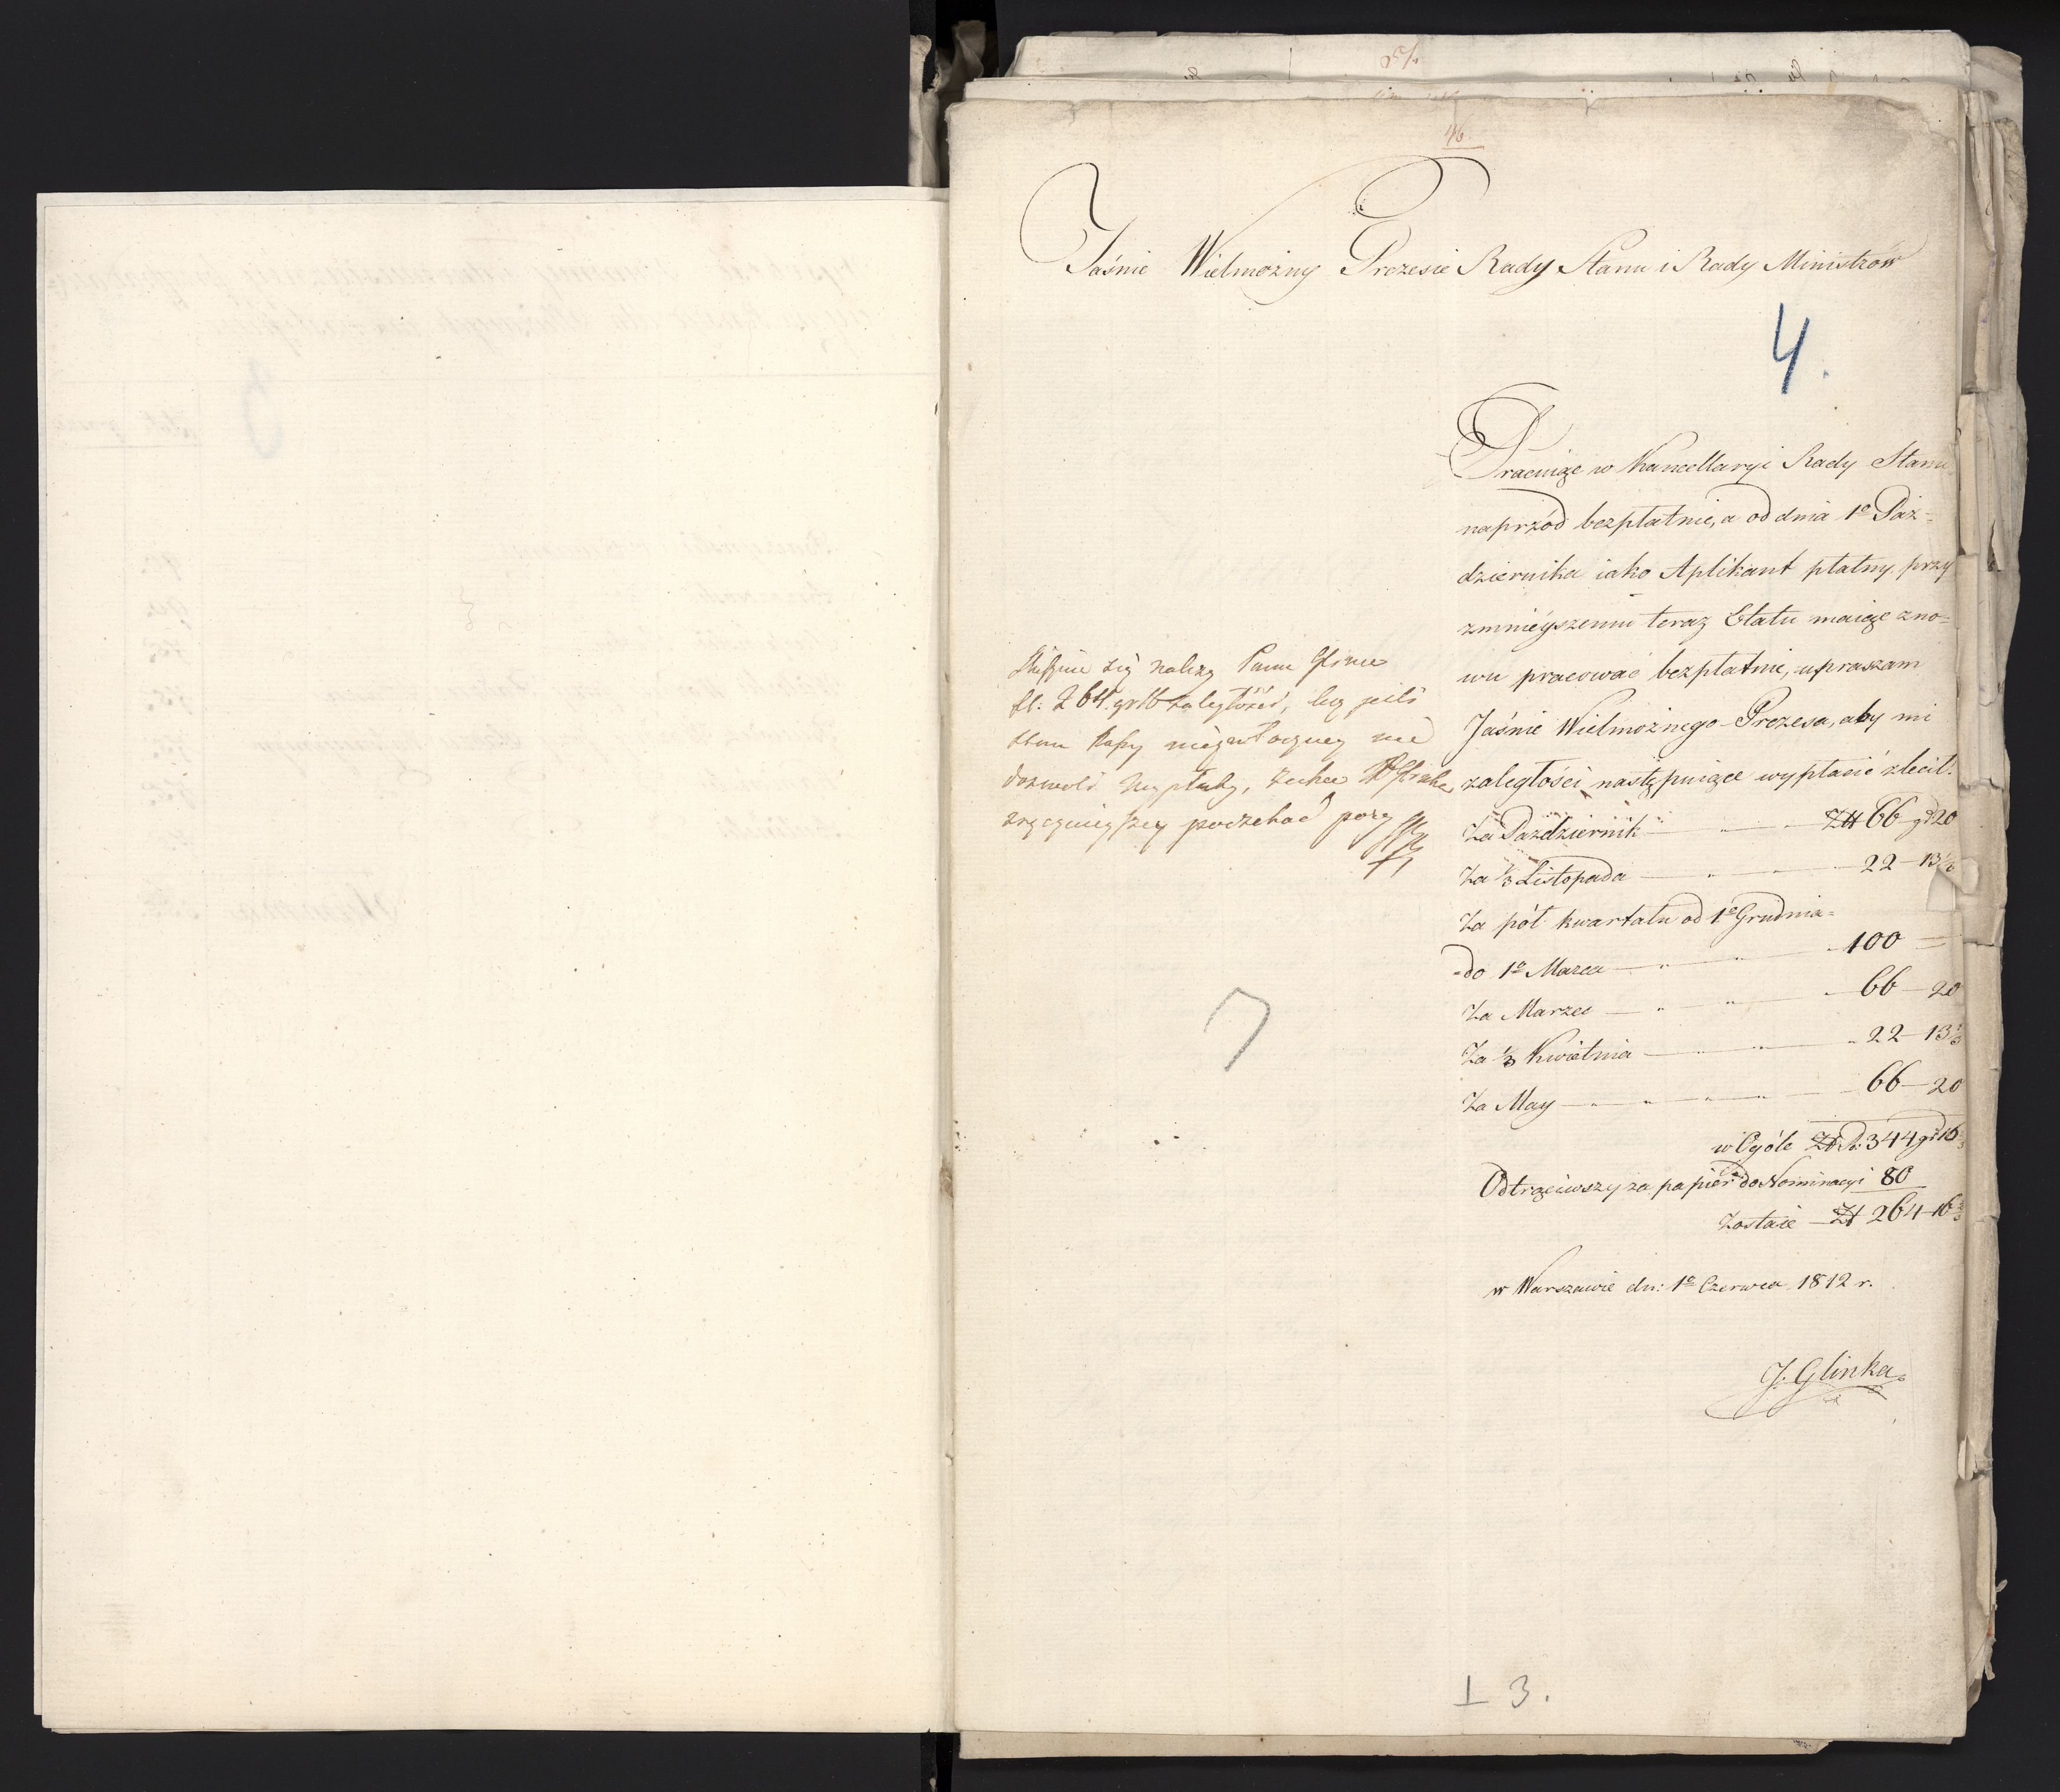 46.
Jaśnie Wielmożny Prezesie Rady Stanu i Rady Ministrów
4.
Pracuiąc w Kancellaryi Rady Stanu
naprzód bezpłatnie, a od dnia 1º Paź=
dziernika iako Aplikant płatny, przy
zmnieyszeniu teraz Etatu maiąc zno=
wu pracować bezpłatnie, upraszam
Jaśnie Wielmożnego Prezesa, aby mi
zaległości następuiące wypłacić zlecił.
Za Pazdziernik — Złł 66 gr 20
Za 1/3 Listopada — 22 — 13 1/3
Za pół kwartału od 1º Grudnia=
=do 1º Marca — 100 =
Za Marzec — 66 — 20
Za 1/3 Kwietnia — 22 — 13 1/3
Za May — 66 — 20
w Ogóle Zł P: 344 gr 16
Odtrąciwszy za papier do Nominacyi 80
Zostaie Zł 264 — 16 2/3
w Warszawie dn: 1º Czerwca 1812 r.
J. Glinka
Słusznie się należy Panu Glince
fl: 264. gr 16 zaległość, lecz jeśli
stan Kassy nie
dozwoli wypłaty, zechce JP Glinka
poczekać pory
7
I 3.